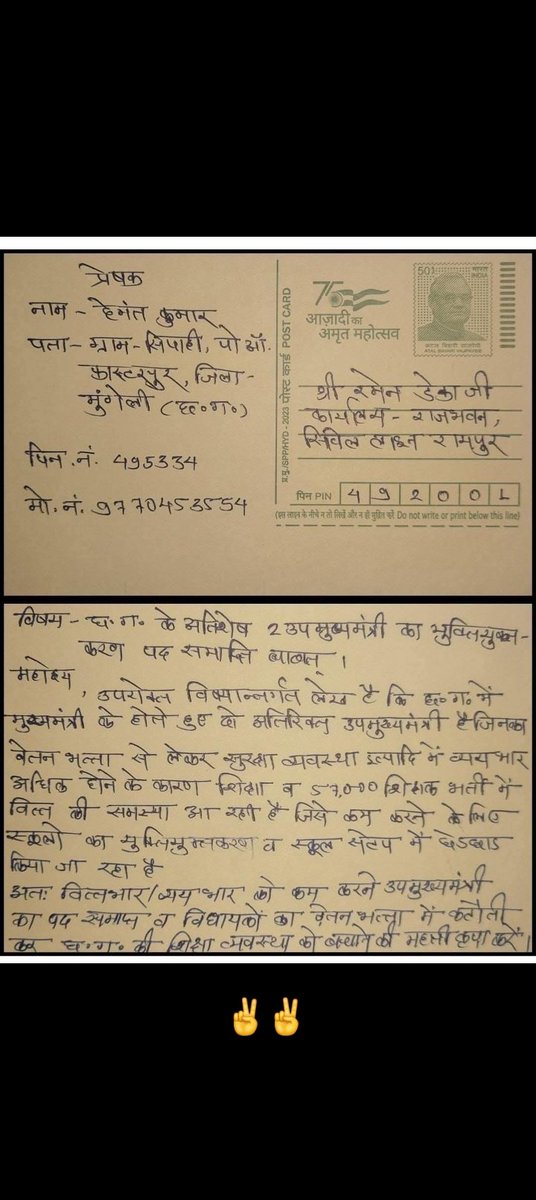 प्रेषक
नाम - हेमंत कुमार
पता - ग्राम - सिपाही, पो ऑ.
फास्टरपुर, जिला -
मुंगेली (छ.ग.)
पिन. नं. 495334
मो. नं. 9770453554
प.मु./SPPHYD - 2023 पोस्ट कार्ड POST CARD
75
आज़ादी का
अमृत महोत्सव
50
भारत
INDIA
अटल बिहारी वाजपेयी
ATAL BIHARI VAJPAYEE
श्री रमेन डेका जी
कार्यालय - राजभवन,
सिविल लाइन रायपुर
पिन PIN 4 9 2 0 0 1
(इस लाइन के नीचे न तो लिखें और न ही मुद्रित करें Do not write or print below this line)
विषय - छ.ग. के अतिशेष 2 उपमुख्यमंत्री का युक्तियुक्त-
करण पद समाप्ति बाबत्।
महोदय,
उपरोक्त विषयान्तर्गत लेख है कि छ.ग. में
मुख्यमंत्री के होते हुए दो अतिरिक्त उपमुख्यमंत्री है जिनका
वेतन भत्ता से लेकर सुरक्षा व्यवस्था इत्यादि में व्यय भार
अधिक होने के कारण शिक्षा व 57,000 शिक्षक भर्ती में
वित्त की समस्या आ रही है जिसे कम करने के लिए
स्कूलो का युक्तियुक्तकरण व स्कूल सेटप में छेडछाड
किया जा रहा है
अतः वित्तभार/व्यय भार को कम करने उपमुख्यमंत्री
का पद समाप्त व विधायकों का वेतन भत्ता में कटौती
कर छ.ग. की शिक्षा व्यवस्था को बचाने की महती कृपा करें।